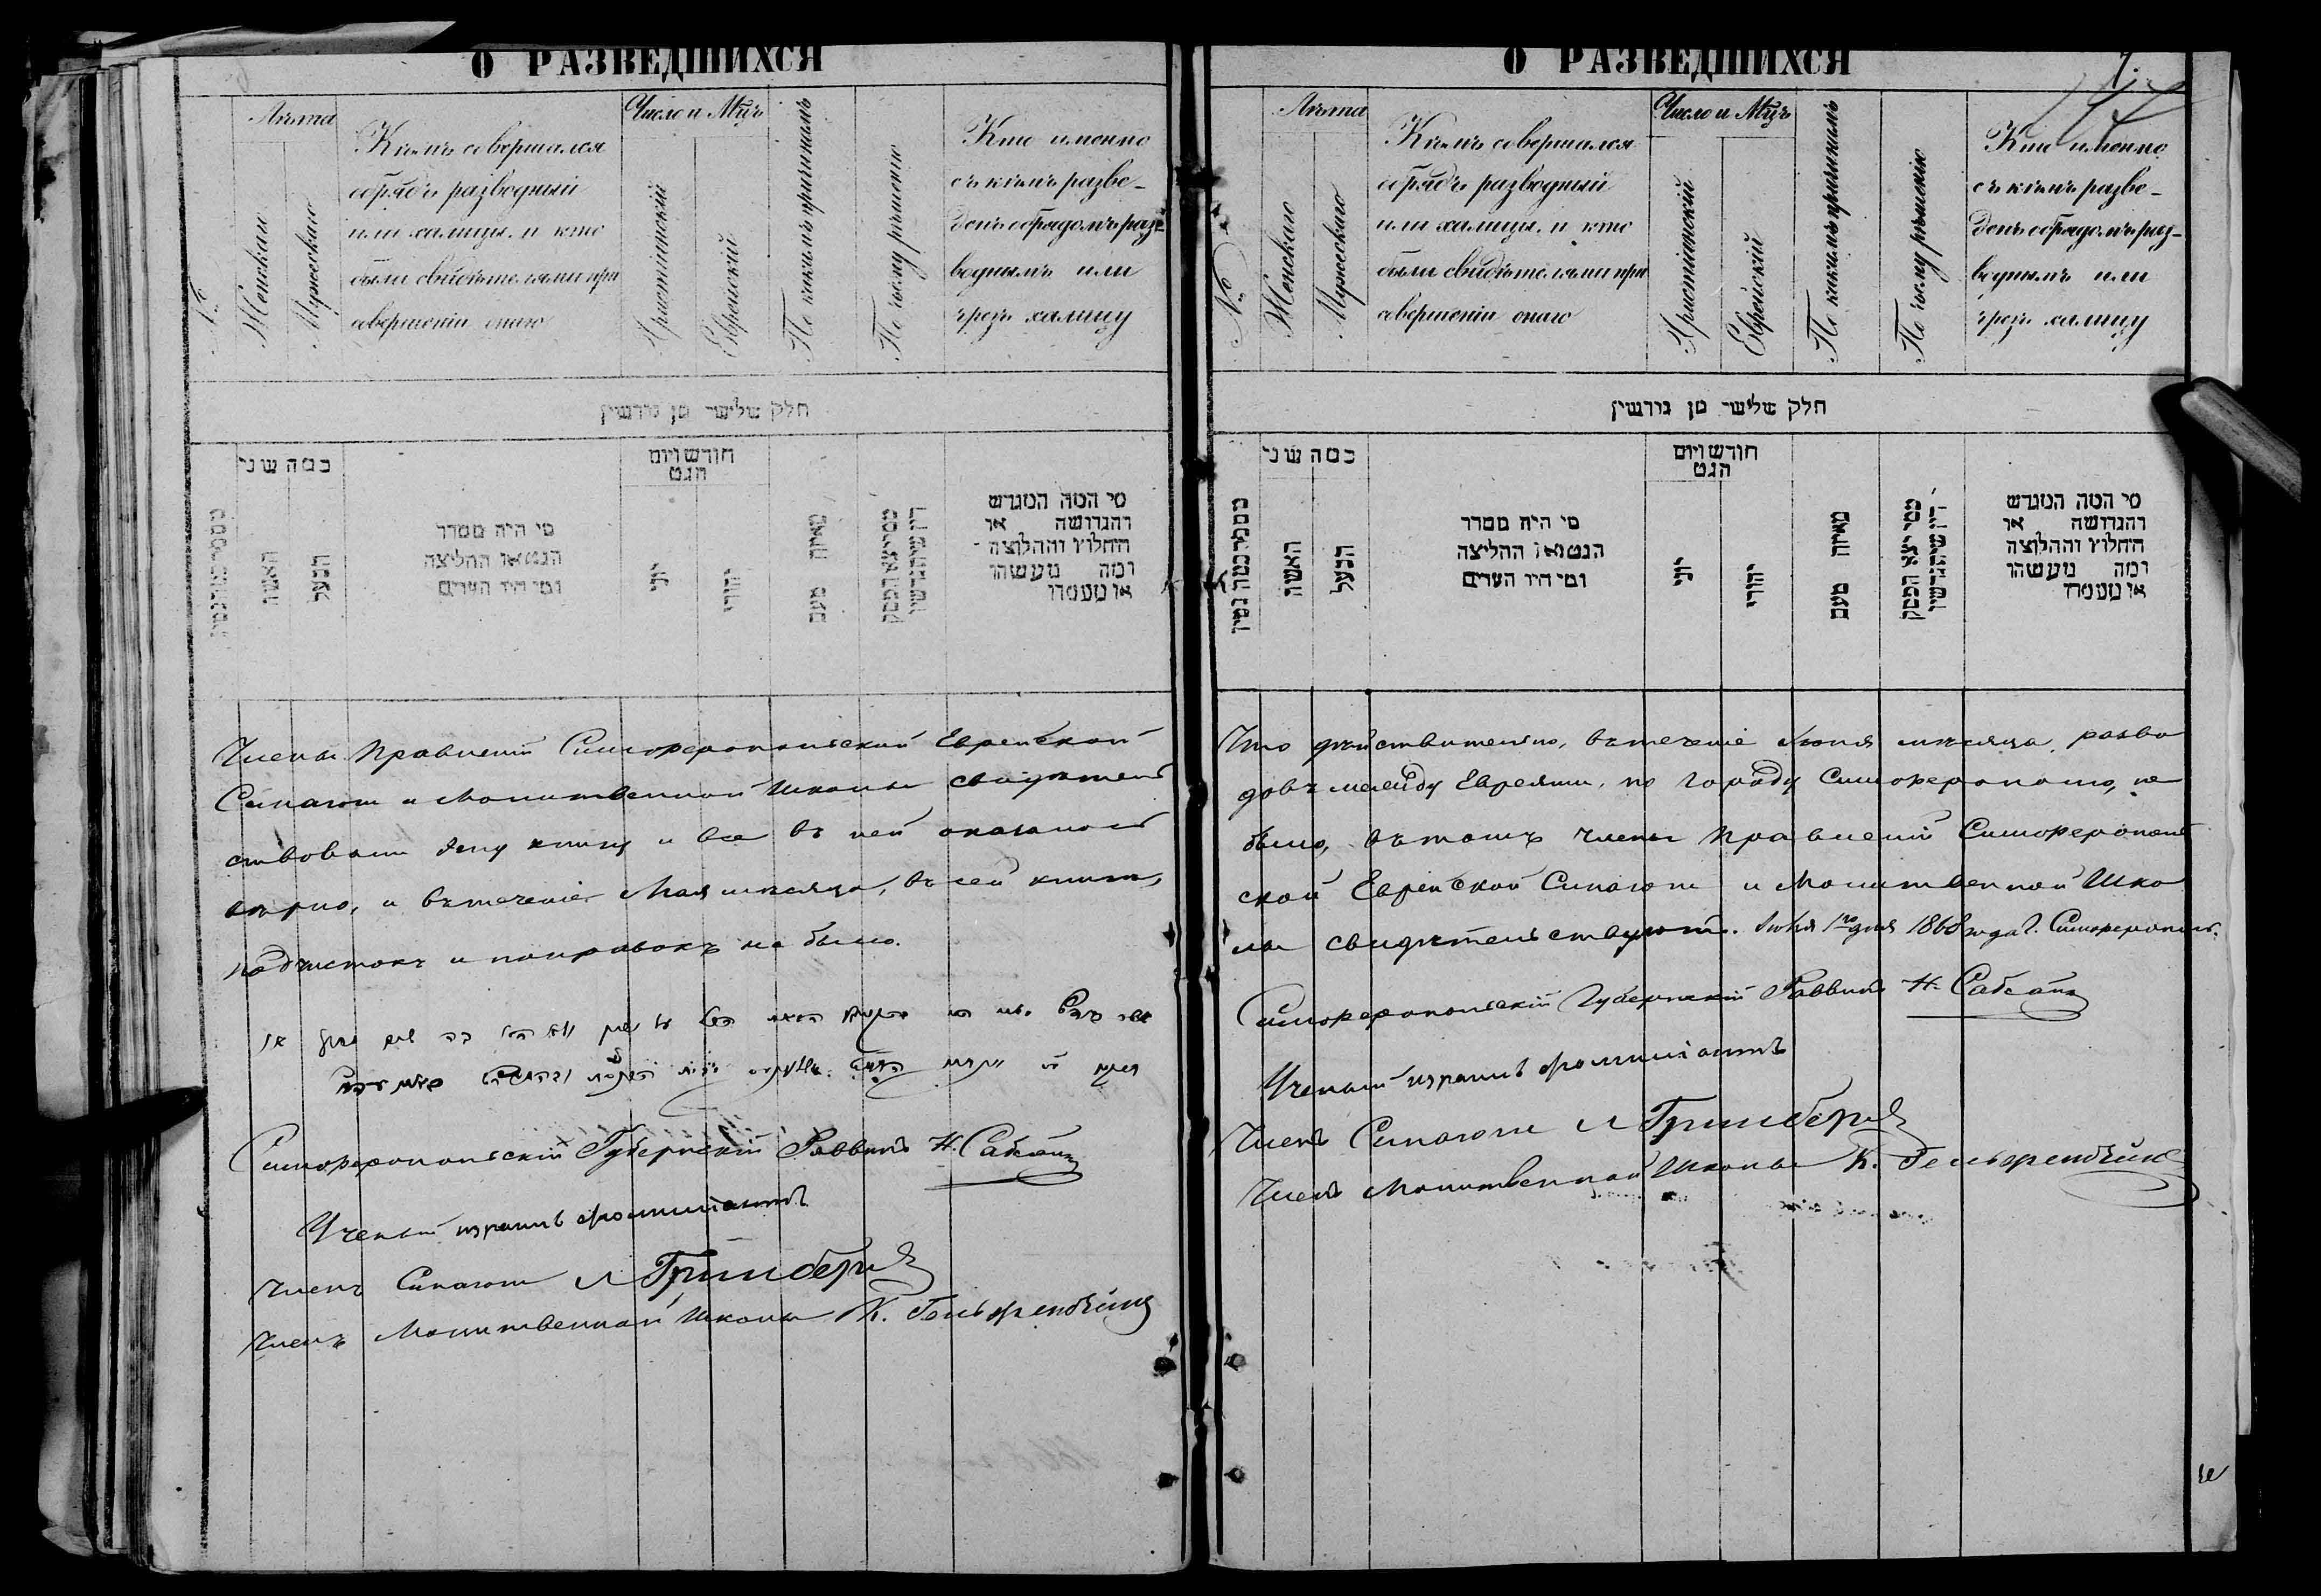 О РАЗВЕДШИХСЯ
№
Лѣта
Женскаго
Мужескаго
Кѣмъ совершался
обрядъ разводный
или халицы и кто
были свидѣтелями при
совершеніи онаго
Число и Мцъ
Христіянскій
Еврейскій
По какимъ причинамъ
По чьему рѣшенію
Кто именно
съ кѣмъ разве-
денъ обрядомъ раз-
воднымъ или
чрезъ халицу
חלק שלישי מן גירושין
כמה שני
האשה
הבעל
מי היה מסדר
הגט או החליצה
ומי היו העדים
חודש ויום
הגט
יוני
יהודי
מאיזה טעם
מי המה המגרש
והגרושה או
החלוץ והחלוצה
ומה מעשהו
או מעמדו
Члены Правленій Симферопольской Еврейской
Синагоги и Молитвенной Школы свидѣтель
ствовали сію книгу и все въ ней оказалось
вѣрно, и въ теченіе Мая мѣсяца, въ сей книгѣ,
подчистокъ и поправокъ не было.
Симферопольскій Губернскій Раввинъ Н. Сабсай
Ученый
Членъ Синагоги Л Гринбергъ
Членъ Молитвенной Школы К. Гельфенбейнъ
О РАЗВЕДШИХСЯ
7.
№
Лѣта
Женскаго
Мужескаго
Кѣмъ совершался
обрядъ разводный
или халицы и кто
были свидѣтелями при
совершеніи онаго
Число и Мцъ
Христіянскій
Еврейскій
По какимъ причинамъ
По чьему рѣшенію
Кто именно
съ кѣмъ разве-
денъ обрядомъ раз-
воднымъ или
чрезъ халицу
חלק שלישי מן גירושין
כמה שני
האשה
הבעל
מי היה מסדר
הגט או החליצה
ומי היו העדים
חודש ויום
הגט
יוני
יהודי
מאיזה טעם
מי המה המגרש
והגרושה או
החלוץ והחלוצה
ומה מעשהו
או מעמדו
Что дѣйствительно, въ теченіе Іюня мѣсяца, разво
довъ между Евреями, по городу Симферополю, не
было, въ томъ члены Правленій Симферополь
ской Еврейской Синагоги и Молитвенной Шко
лы свидѣтельствуютъ. Іюля 1го дня 1868 года г. Симферополь.
Симферопольскій Губернскій Раввинъ Н. Сабсай
Ученый
Членъ Синагоги Л Гринбергъ
Членъ Молитвенной Школы К. Гельфенбейнъ